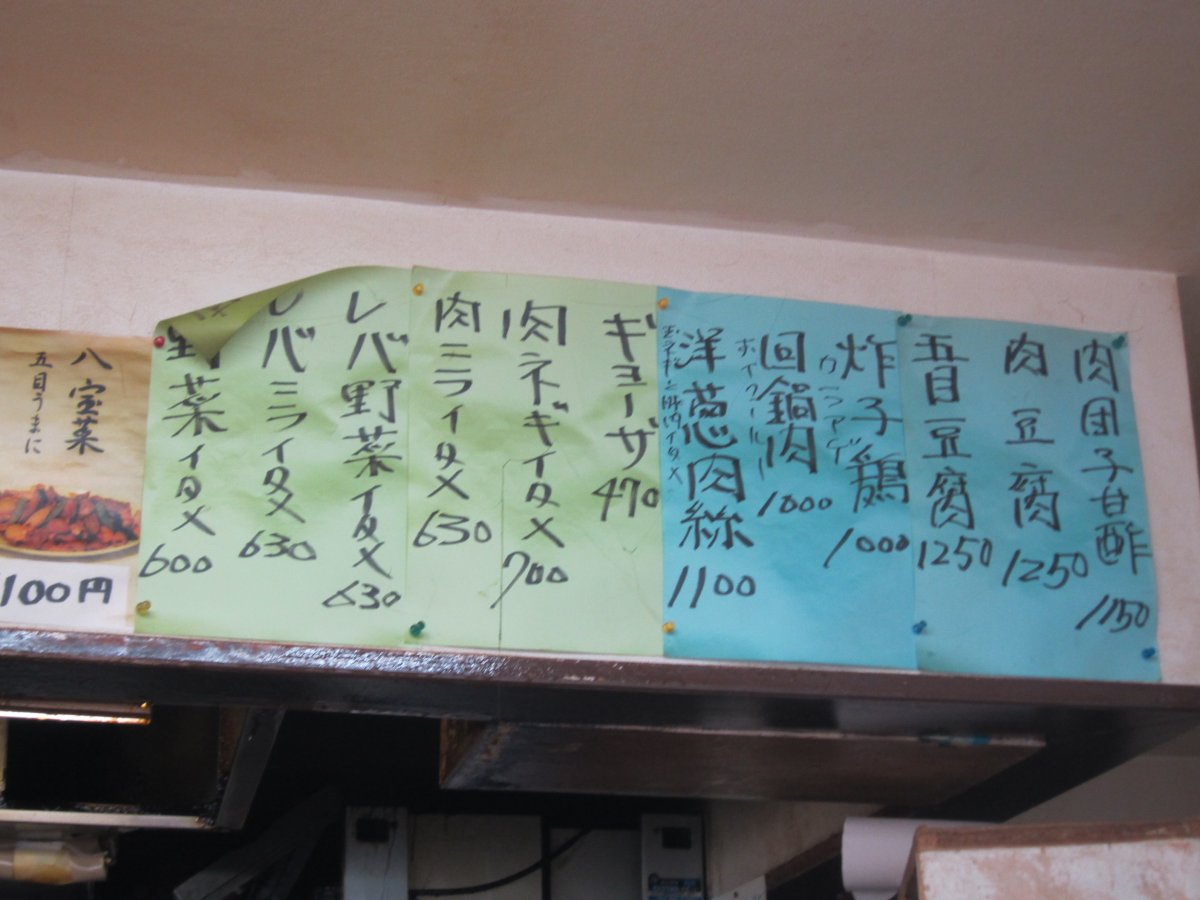 肉団子甘酢 1150
肉豆腐 1250
五目豆腐 1250
炸子鶏 1000
回鍋肉 1000
ホイコーロー
洋葱肉絲 1100
ギョーザ 470
肉ネギイタメ 700
肉ニライタメ 630
レバ野菜イタメ 630
レバニライタメ 630
野菜イタメ 600
八宝菜
五目うまに
100円